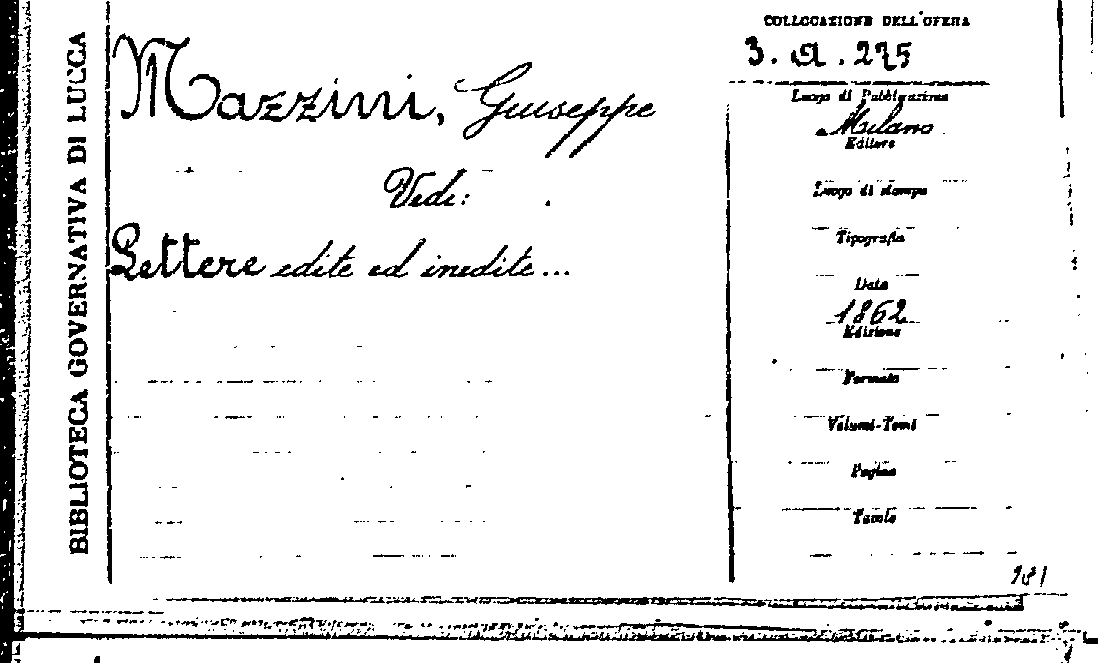 BIBLIOTECA GOVERNATIVA DI LUCCA
Mazzini, Giuseppe
Vedi:
Lettere edite ed inedite...
COLLOCAZIONE DELL'OPERA
3. a. 275
Luogo di Pubblicazione
Milano
Editore
Luogo di stampa
Tipografia
Data
1862
Edizione
Formato
Volumi-Tomi
Pagine
Tavole